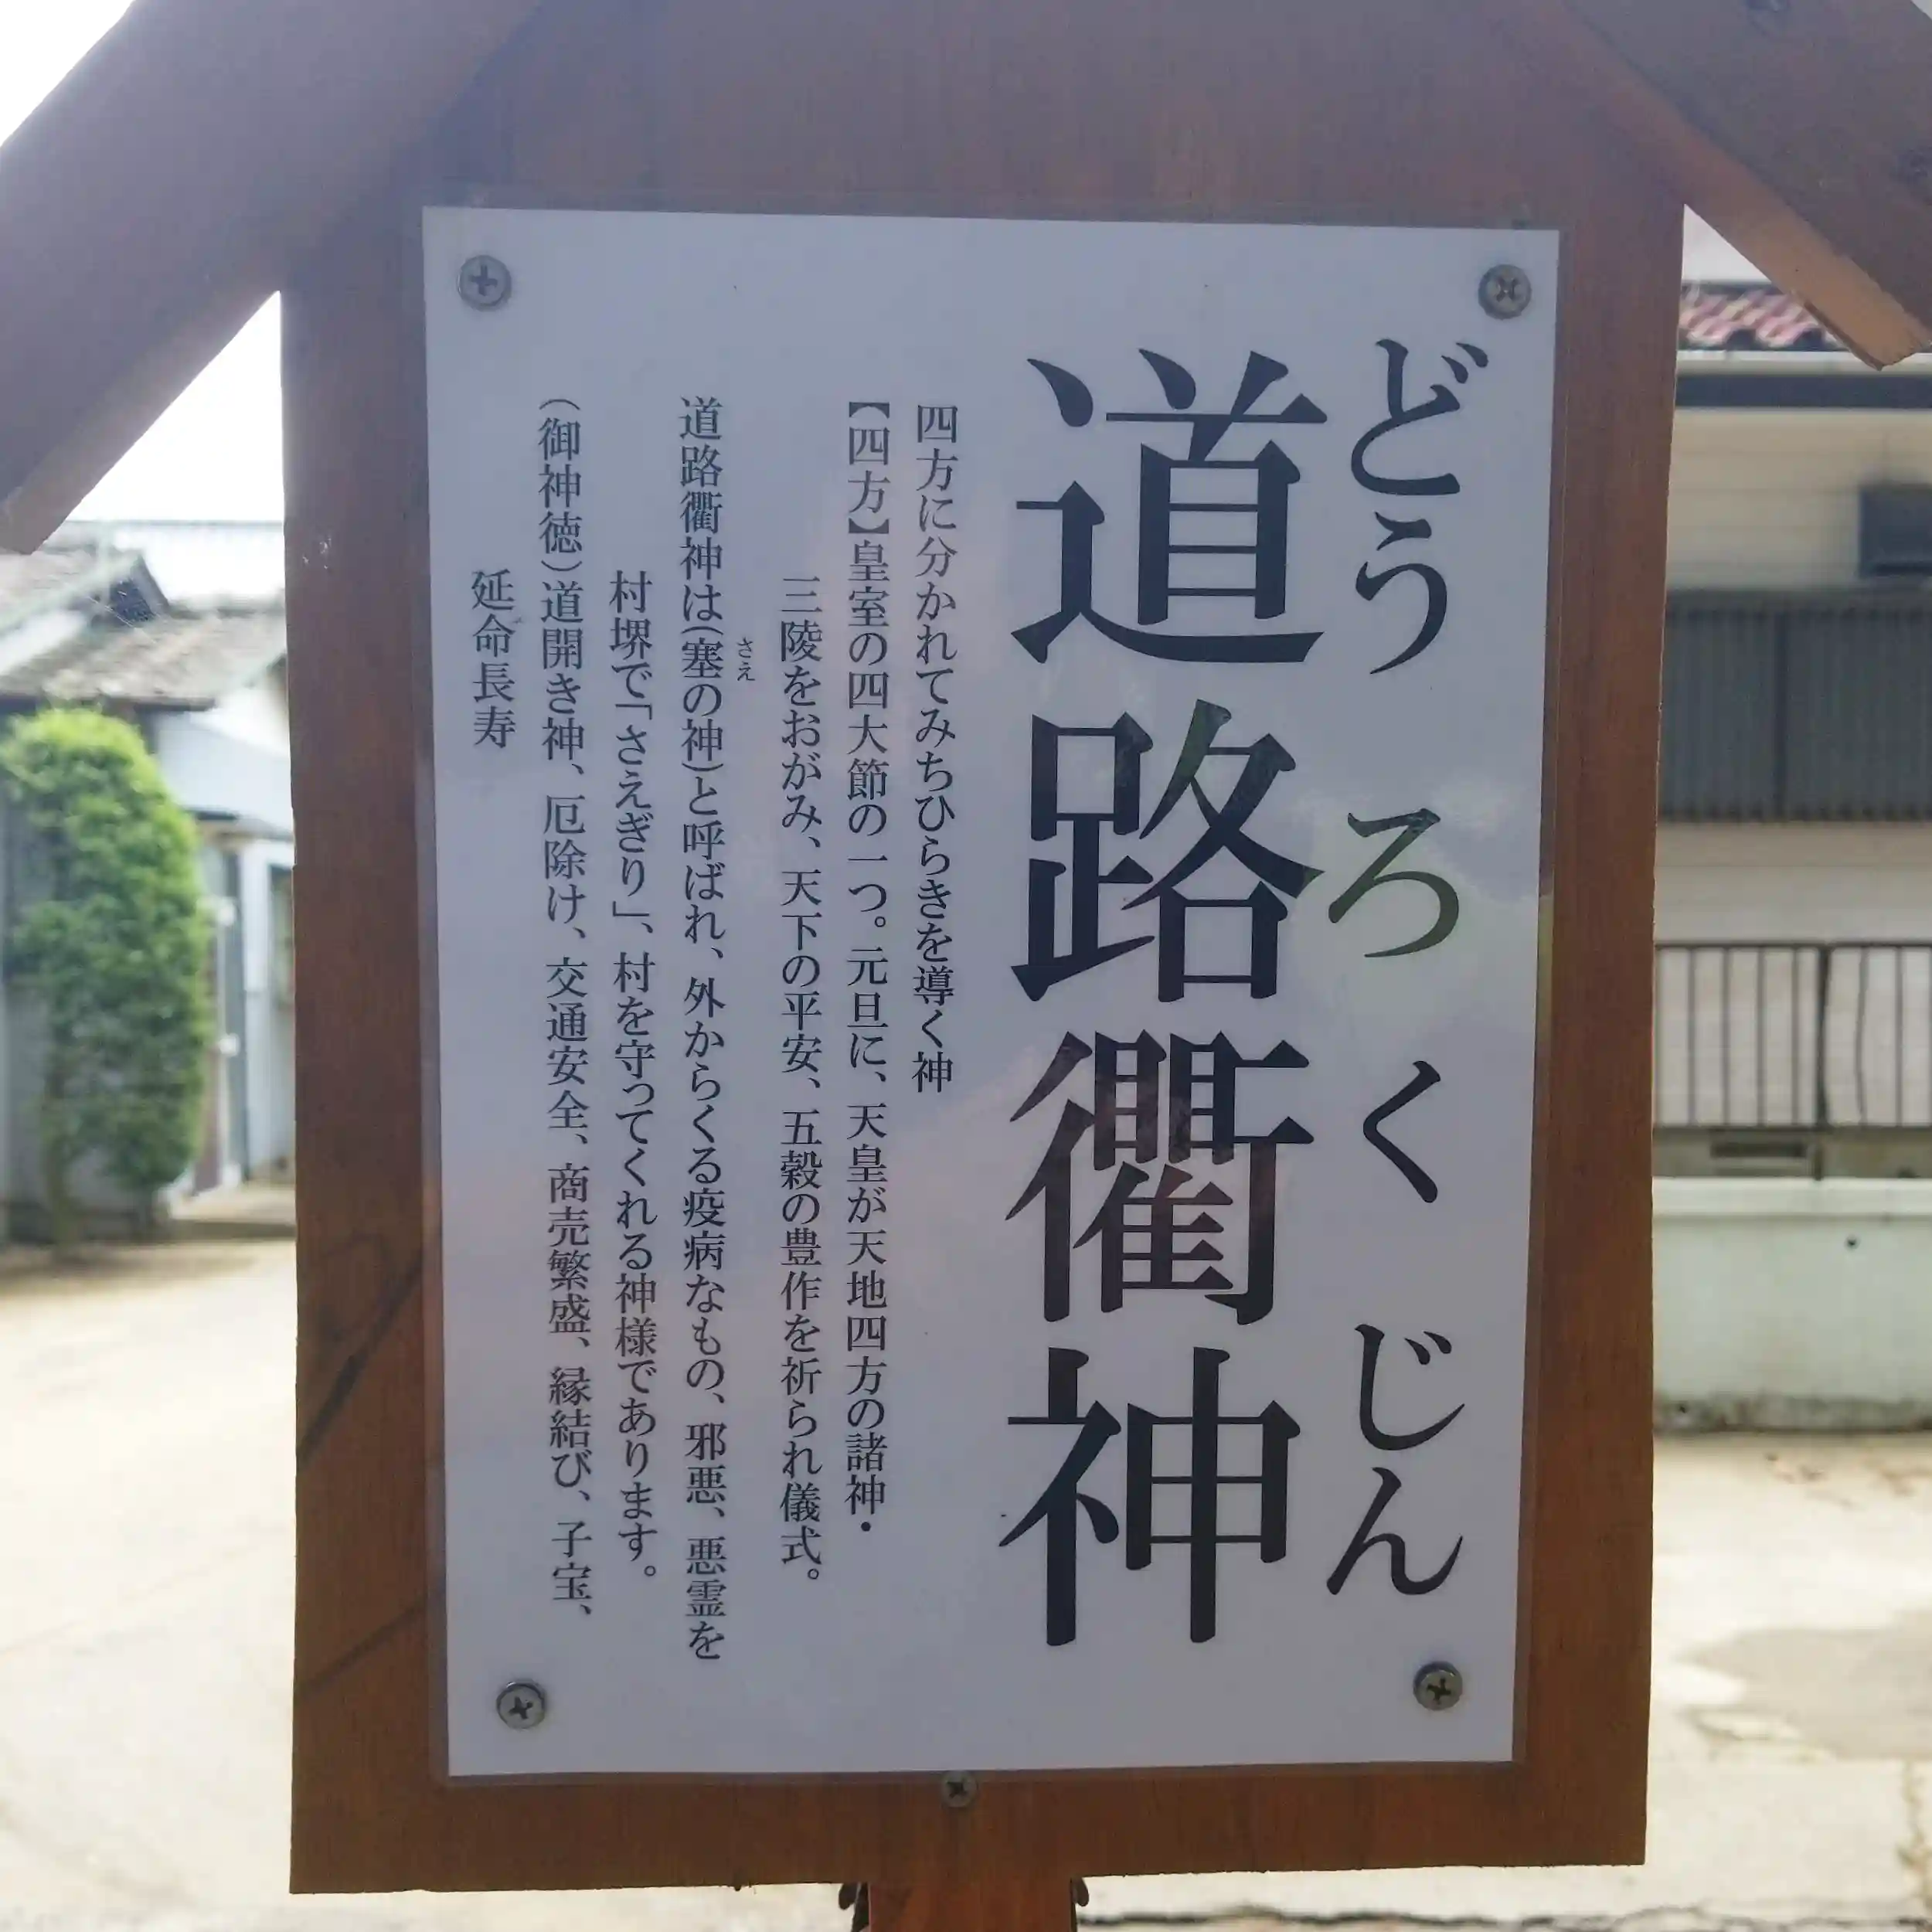 どうろくじん
道路衢神
四方に分かれてみちひらきを導く神
【四方】皇室の四大節の一つ。元旦に、天皇が天地四方の諸神・
三陵をおがみ、天下の平安、五穀の豊作を祈られ儀式。
さえ
道路衢神は(塞の神)と呼ばれ、外からくる疫病なもの、邪悪、悪霊を
村堺で「さえぎり」、村を守ってくれる神様であります。
(御神徳)道開き神、厄除け、交通安全、商売繁盛、縁結び、子宝、
延命長寿